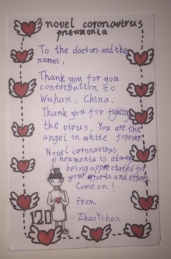 novel coronavirus
pneumonia
To the doctors and the
names,
Thank you for you
contribution to
Wuhan, China.
Thank you for fighting
the virus. You are the
angel in white forever
Novel coronavirus
pneumonia is
being appreciated for
your efforts and
Come on!
From
ZhaoYihan
120